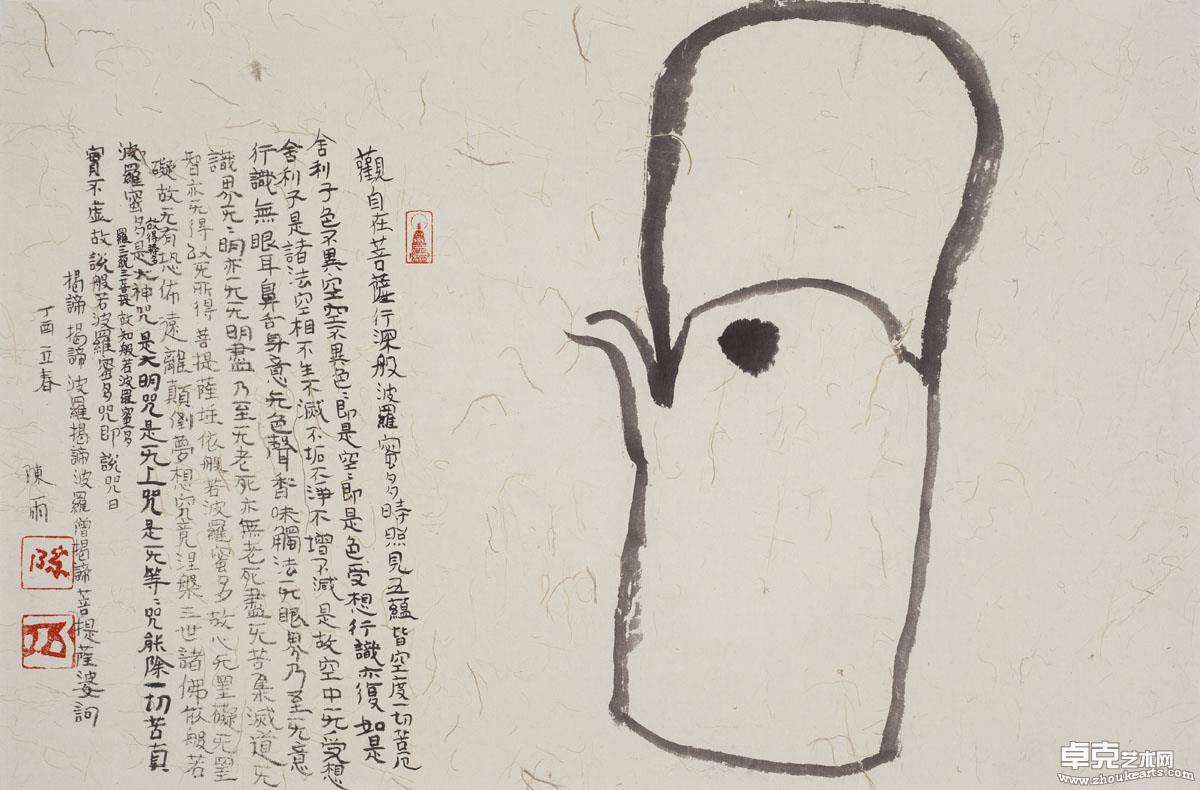 觀自在菩薩行深般波羅蜜多時照見五蘊皆空度一切苦厄
舍利子色不異空空不異色〻即是空〻即是色受想行識亦復如是
舍利子是諸法空相不生不滅不垢不淨不增不減是故空中旡受想
行識無眼耳鼻舌身意旡色聲香味觸法旡眼界乃至旡意
識界旡〻明亦旡旡明盡乃至旡老死亦無老死盡旡苦集滅道旡
智亦旡得以旡所得菩提薩埵依般若波羅蜜多故心旡罣礙旡罣
礙故旡有恐佈遠離顛倒夢想究竟涅槃三世諸佛依般若
波羅蜜多故得
羅三藐三菩提故知般若波羅蜜多
是大神咒是大明咒是旡上咒是旡等〻咒能除一切苦真
實不虛故說般若波羅蜜多咒即說咒曰
揭諦揭諦波羅揭諦波羅僧揭諦菩提薩婆訶
丁酉立春
陳雨
卓克艺术网
www.zhoukearts.com